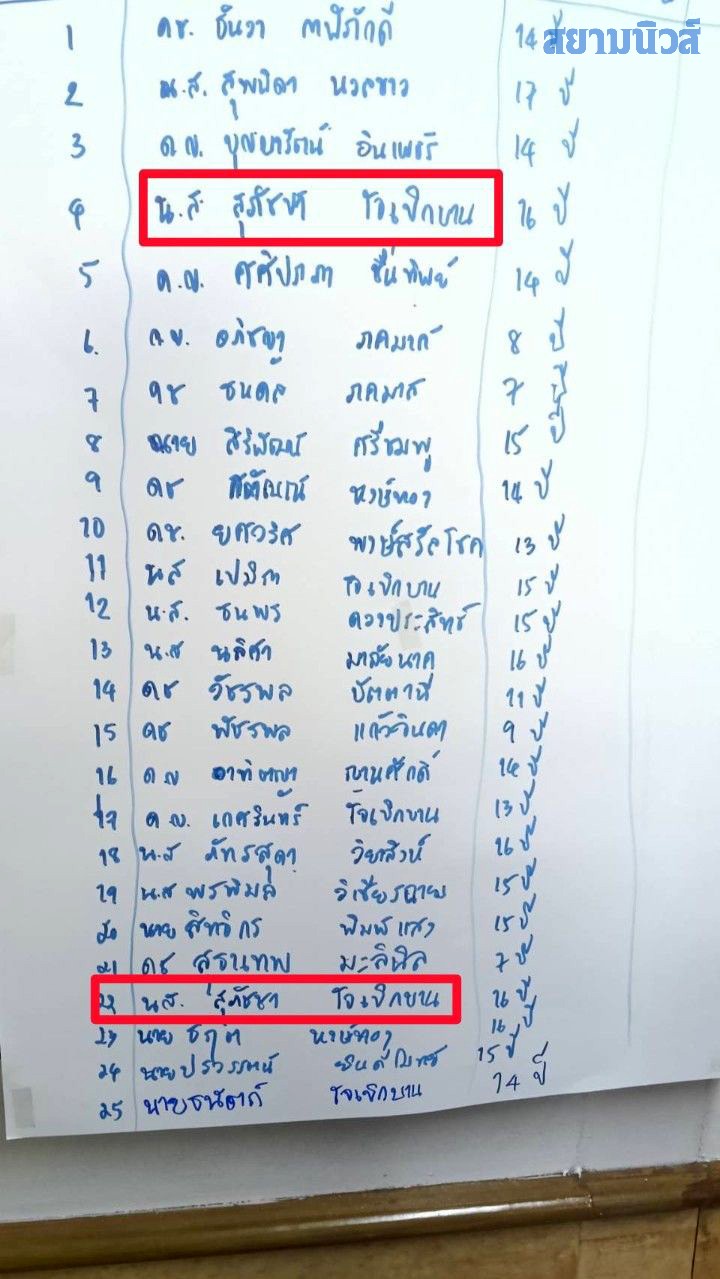 สยามนิวส์
1 ดช. ธันวา ภาษีภักดี 14 ปี
2 น.ส. สุพนิดา นวลขาว 17 ปี
3 ด.ญ. บุญยารัตน์ อินเพชร 14 ปี
4 น.ส สุภัชชา ใจเบิกบาน 16 ปี
5 ด.ญ. ศศิปภา ชื่นทิพย์ 14 ปี
6. ด.ญ. อภิชญา ภคมาศ 8 ปี
7 ดช ธนดล ภคมาส 7 ปี
8 นาย สิริพัฒน์ ศรีชมพู 15 ปี
9 ดช หงษ์ทอง 14 ปี
10 ดช. ยศวริศ โชค 13 ปี
11 นส เปมิกา ใจเบิกบาน 15 ปี
12 น.ส. ธนพร ดวงประสิทธ์ 15 ปี
13 น.ส นลิศา มาลัยนาค 16 ปี
14 ดช วัชรพล ปัตตานี 11 ปี
15 ดช พัชรพล แก้วจินดา 9 ปี
16 ด.ญ อาทิตญา ญานศักดิ์ 14 ปี
17 ด.ญ. เกศรินทร์ ใจเบิกบาน 13 ปี
18 น.ส ภัทรสุดา วิยาสิงห์ 16 ปี
19 น.ส พรพิมล วิเชียรฉาย 15 ปี
20 นาย สิทธิกร พิมพ์แสง 15 ปี
21 ดช สุธนเทพ มะลินิล 7 ปี
22 นส. สุภัชชา ใจเบิกบาน 16 ปี
23 นาย หงษ์ทอง 16 ปี
24 นาย 15 ปี
25 นายธนัตถ์ ใจเบิกบาน 14 ปี